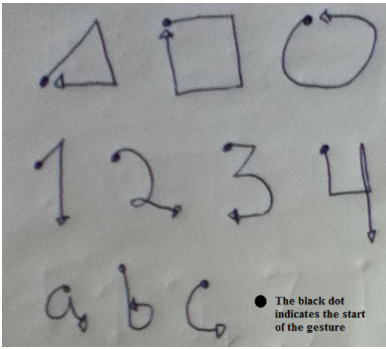 1 2 3 4
a b c
The black dot
indicates the start
of the gesture